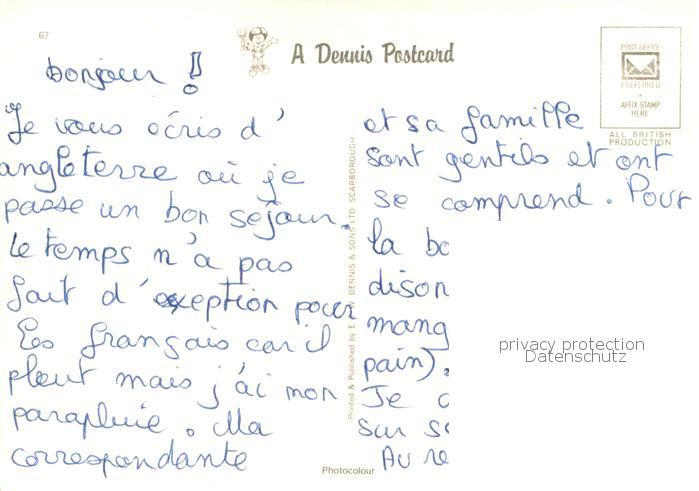 67
A Dennis Postcard
POST OFFICE
PREFERRED
AFFIX STAMP
HERE
ALL BRITISH
PRODUCTION
bonjour !
Je vous écris d'
angleterre où je
passe un bon séjour.
Le temps n'a pas
fait d'exeption pour
Les français car il
pleut mais j'ai mon
parapluie. Ma
correspondante
Printed & Published by E. T. W. DENNIS & SONS LTD SCARBOROUGH
et sa famille
sont gentils et ont
se comprend. Pour
la bo
dison
mang
pain).
Je
sur
Au re
Photocolour
privacy protection
Datenschutz